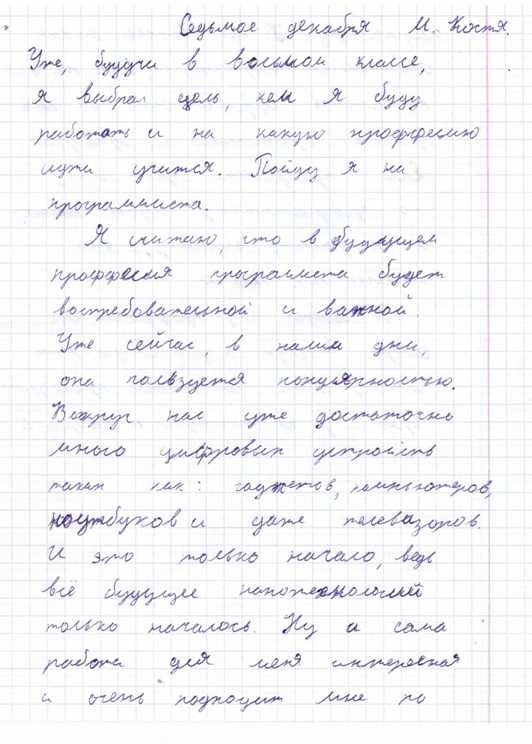 Седьмое декабря М. Костя.
Уже, будучи в восьмом классе,
я выбрал цель, кем я буду
работать и на какую проффесию
идти учится. Пойду я на
программиста.
Я считаю, что в будующем
проффесия программиста будет
востребовательной и важной.
Уже сейчас, в наши дни,
она пользуется популярностью.
Вокруг нас уже достаточно
много цифровых устройств
таких как: гаджетов, компьютеров,
ноутбуков и даже телевизоров.
И это только начало, ведь
всё будущее нанотехнологий
только началось. Ну и сама
работа для меня интересная
и очень подходит мне по